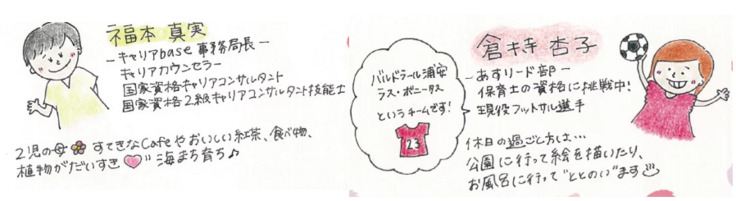 福本 真実
－キャリアbase 事務局長－
キャリアカウンセラー
国家資格キャリアコンサルタント
国家資格2級キャリアコンサルタント技能士
2児の母 すてきなCafeやおいしい紅茶、食べ物、
植物がだいすき 海まち育ち♪
倉持 杏子
－あすリード部－
保育士の資格に挑戦中!
現役フットサル選手
バルドラール浦安
ラス・ボニータス
というチームです!
23
休日の過ごし方は…
公園に行って絵を描いたり、
お風呂に行って"ととのい"ます